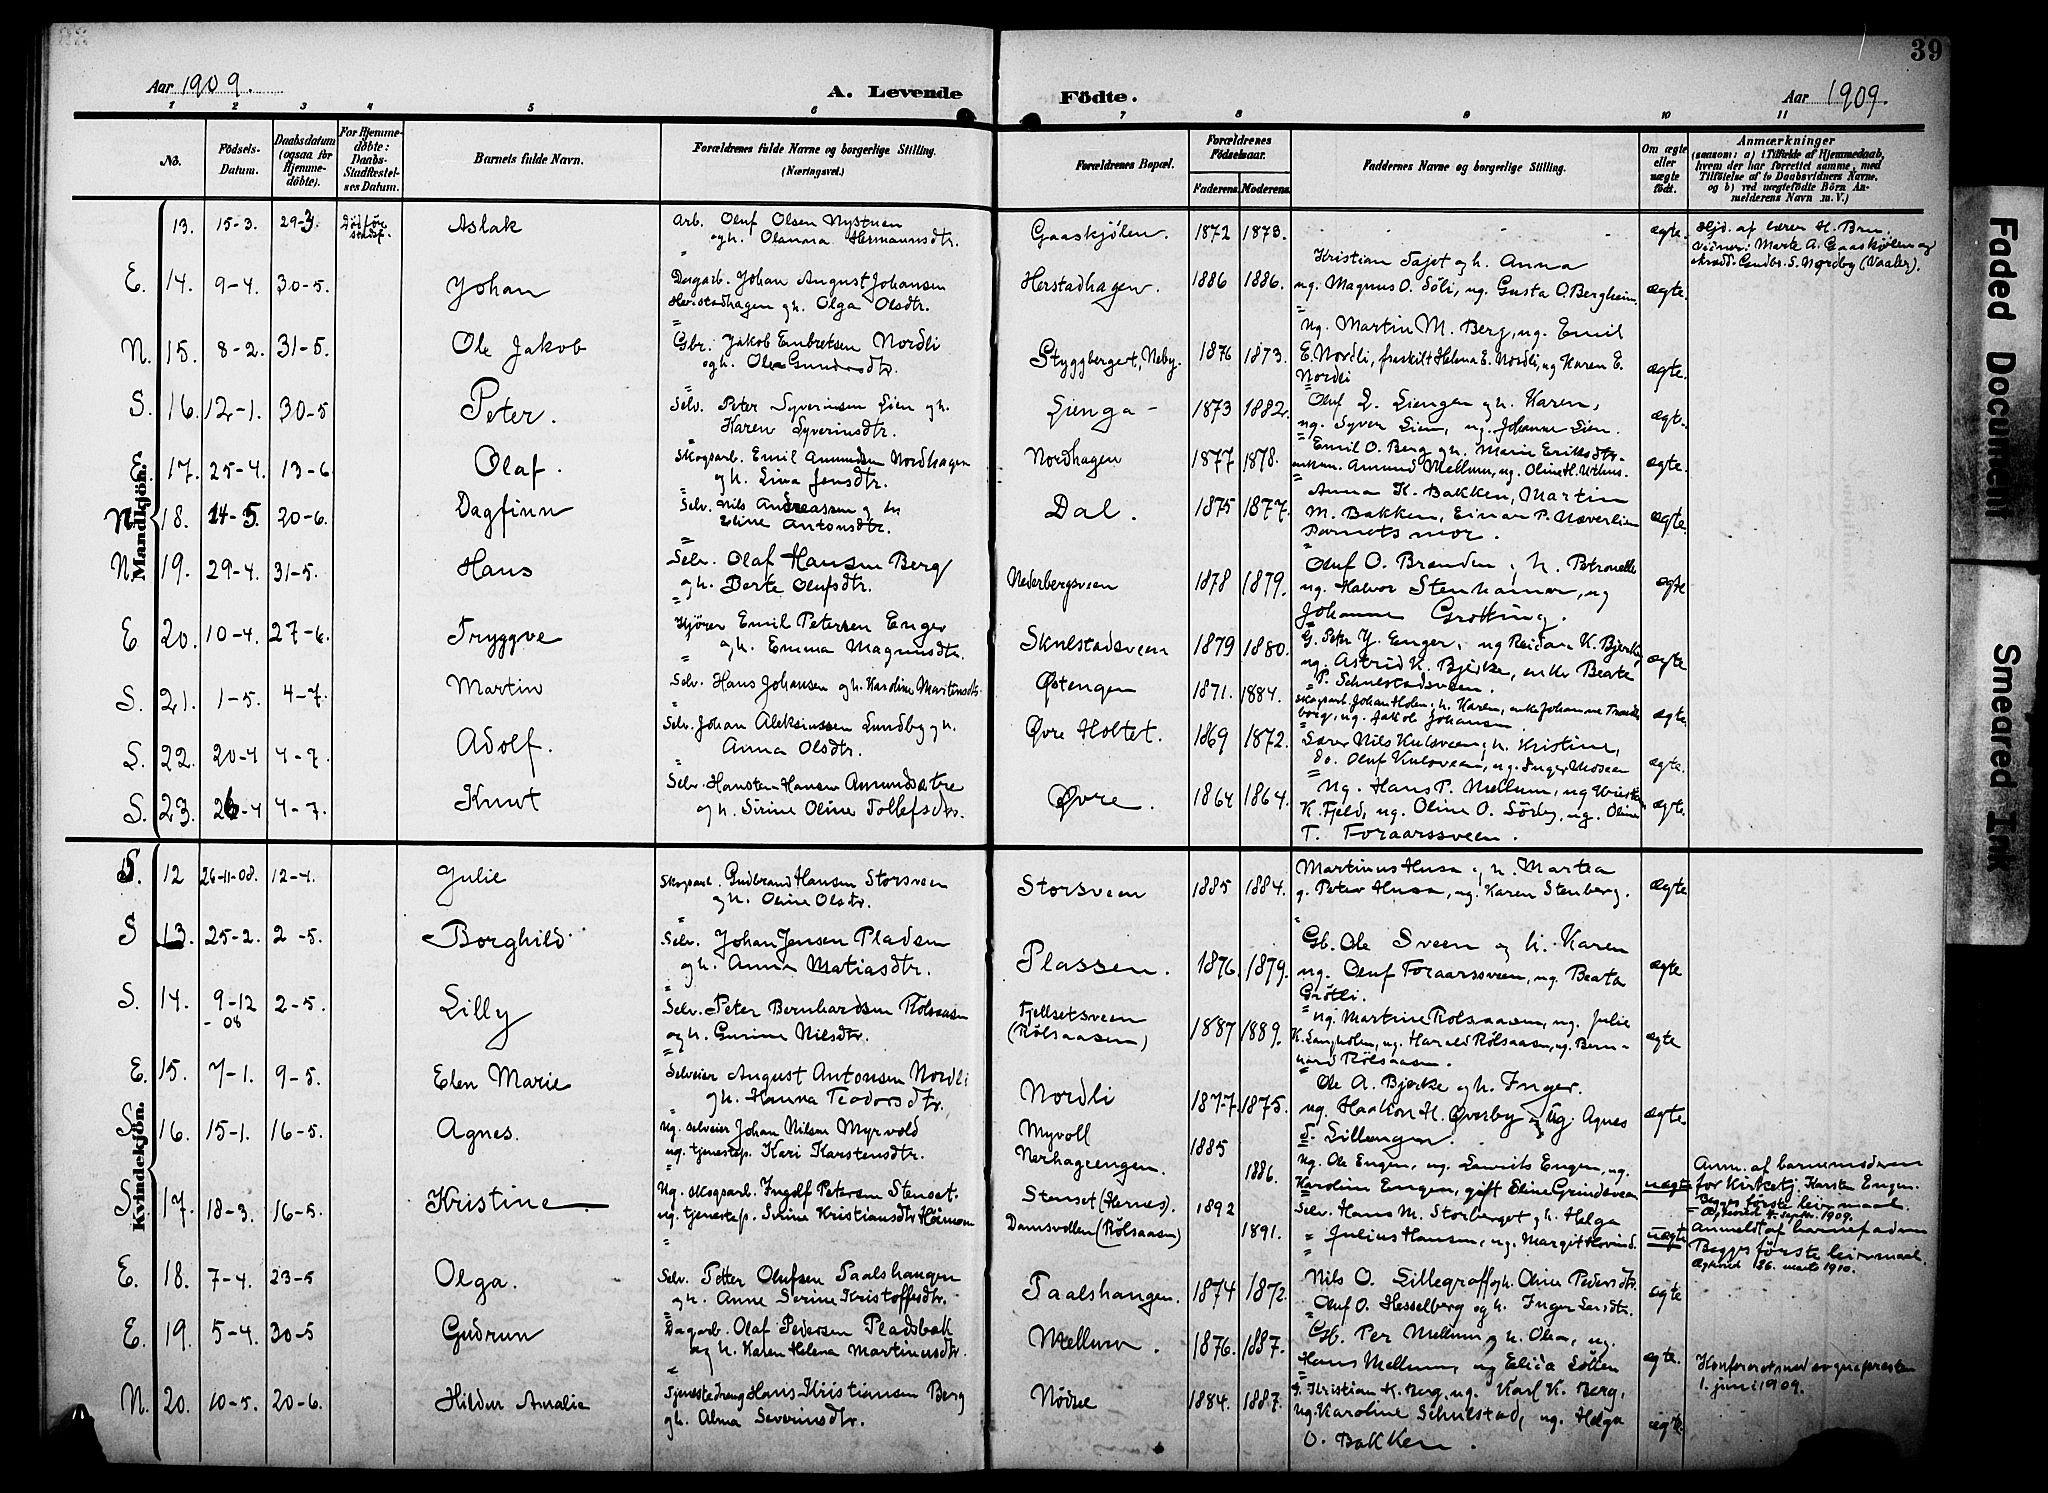 39
Aar 1909.
A. Levende Födte.
Aar 1909.
1 2 3 4 5 6 7 8 9 10 11
No.
Födsels-Datum.
Daabsdatum (ogsaa for Hjemme-döbte).
For Hjemme-döbte: Daabs-Stadfæstel-ses Datum.
Barnets fulde Navn.
Forældrenes fulde Navne og borgerlige Stilling. (Næringsvei.)
Forældrenes Bopæl.
Forældrenes Födselsaar. Faderens. Moderens.
Faddernes Navne og borgerlige Stilling.
Om ægte eller uægte födt.
Anmærkninger
(saasom: a) i Tilfælde af Hjemmedaab, hvem der har forrettet samme, med Tilföielse af to Daabsvidners Navne, og b) ved uægtefödte Börn Anmelderens Navn m. V.)
Mandkjön.
13. 15-3. 29-3. Död för stadf. Aslak
Arb. Oluf Olsen Nystuen
og h. Olanna Hermannsdtr.
Gaaskjølen. 1872 1873. ægte.
Hjd. af lærer H. Bru.
Vidner: Marte A. Gaaskjølen og
E. 14. 9-4. 30-5. Johan
Dagarb. Johan August Johansen
Herstadhagen og h. Olga Olsdtr.
Herstadhagen. 1886 1886.
Kristian Tajet og h. Anna
ug. Magnus O. Söli, ug. Gusta O. Bergheim. ægte.
N. 15. 8-2. 31-5. Ole Jakob
Gbr. Jakob Embretsen Nordli
og h. Olea Gundersdtr.
Styggberget, Neby. 1876 1873.
Ug. Martin M. Berg, ug. Emil
E. Nordli, fraskilt Helena E. Nordli, ug Karen E.
Nordli ægte.
S. 16. 12-1. 30-5 Peter.
Selv. Peter Syverinsen Lien og h.
Karen Syverinsdtr.
Lienga - 1873 1882.
Oluf L. Liengen og h. Karen,
ug. Syver Lien, ug. Johanne Lien. ægte.
17. 25-4. 13-6 Olaf.
Skogsarb. Emil Amundsen Nordhagen
og h. Lina Jensdtr.
Nordhagen 1877 1878.
Emil O. Berg og h. Marie Eriksdtr.
enkem. Amund Mellum, ug. Oline H. ægte.
N. 18. 14-5. 20-6. Dagfinn
Selv. Nils Andreassen og h
Eline Antonsdtr.
Dal. 1875 1877.
Anna K. Bakken, Martin
M. Bakken, Einar P. Næverlien
Barnets mor. ægte.
N. 19. 29-4. 31-5. Hans
Selv. Olaf Hansen Berg
og h. Berte Olufsdtr.
Nederbergsveen 1878 1879.
Oluf O. Branden, h. Petronelle
ug. Halvor Stenhamar, ug
Johanne Grötting. ægte
E 20. 10-4. 27-6. Tryggve
Kjörer Emil Petersen Enger
og h. Emma Magnusdtr.
Skulstadsveen 1879 1880.
G. Peter Y. Enger, ug Reidar K. Bjerke
ug. Astrid K. Bjerke, enke Beate
P. Schulstadsveen. ægte
S. 21. 1-5. 4-7. Martin
Selv. Hans Johansen og h. Karoline Martinsdtr.
Østengen 1871. 1884.
Skogsarb. Johan Holen, h. Karen, enke Johanne
ug. Jakob Johansen ægte.
S. 22. 20-4 4-7. Adolf.
Selv. Johan Aleksiussen Lundby og h.
Anna Olsdtr.
Øvre Holtet. 1869 1872.
Lærer Nils Kulsveen, h. Kristine,
do. Oluf Kulsveen, ug. Inger Moseen ægte.
S. 23. 26-4 4-7. Knut
Selv. Hansten Hansen Amundsætre
og h. Sirine Oline Tollefsdtr.
Øvre. 1864 1864.
Ug. Hans P. Mellum, ug Kristen
K. Fjeld, ug. Oline O. Sörby, ug. Oline
T. Foraarssveen. ægte.
Kvindekjön.
S. 12 26-11-08. 12-4. Julie
Skogsarb. Gudbrand Hansen Storsveen
og h. Oline Olsdtr.
Storsveen 1885 1884.
Martinus Husa og h. Martea
g. Peter Husa, ug. Karen Stenberg. ægte
S 13. 25-2. 2-5. Borghild
Selv. Johan Jensen Pladsen
og h. Anna Matiasdtr.
Plassen. 1876. 1879.
Gb. Ole Sveen og h. Karen
ug. Oluf Foraarssveen, ug. Beata
Grötli. ægte
S. 14. 9-12-08 2-5. Lilly
Selv. Peter Bernhardsen Rölsaasen
og h. Gurine Nilsdtr.
Fjellsetsveen (Rölsaasen) 1887 1889.
Ug. Martine Rölsaasen, ug. Julie
K. Langholen, ug. Harald Rölsaasen, ug. Bern-
hard Rölsaasen. ægte
E. 15. 7-1. 9-5. Elen Marie
Selveier August Antonsen Nordli
og h. Hanna Teodorsdtr.
Nordli 1877. 1875.
Ole A. Bjerke og h. Inger.
ug. Haakon H. Øverby, ug. Agnes
T. Lillengen. ægte.
S. 16. 15-1. 16-5. Agnes.
Ug. selveier Johan Nilsen Myrvold
ug. tjenestep. Kari Karstensdtr.
Myvoll
Nerhageengen. 1885 1886.
Ug. Ole Engen, ug. Laurits Engen, ug.
Karoline Engen, gift Eline Grindsveen uægte
Anm. af barnemoderen
for Kirketj Karsten Engen.
Begges første leiermaal.
Ægteviet 4. septbr. 1909.
S. 17. 18-3. 16-5. Kristine
Ug. skogsarb. Ingolf Petersen Stenset.
ug. tjenestep. Sirine Kristiansdtr Haimon
Stenset (Hernes).
Damsvollen (Rölsaasen) 1892 1891.
Selv. Hans M. Storberget og h. Helga
" Julius Hansen, ug. Margit Hovind. uægte
Anmeldt af barnefaderen
Begges første leiermaal.
Ægteviet 26. marts 1910.
E. 18. 7-4. 23-5 Olga.
Selv. Petter Olufsen Taalshaugen
og h. Anne Serine Kristoffersdtr.
Taalshaugen. 1874 1872.
Nils O. Lillegraff og h. Oline Pedersdtr.
Oluf O. Hesselberg og h. Inger Larsdtr. ægte
E. 19. 5-4. 30-5 Gudrun
Dagarb. Olaf Pedersen Pladsbak
og h. Karen Helena Martinusdtr.
Mellum. 1876. 1887.
Gb. Per Mellum og h. Olea, ug.
Hans Mellum, ug Elida Sötten ægte.
Konfereret med sogneprästen
1. juni 1909.
N. 20. 10-5. 20-6. Hildur Amalie
Tjenestedreng Hans Kristiansen Berg
og h. Alma Severinsdtr.
Nödsel 1884. 1887.
G. Kristian K. Berg, ug. Karl K. Berg,
ug. Karoline Schulstad, ug. Helga
O. Bakken. ægte.
Faded Document
Smeared Ink